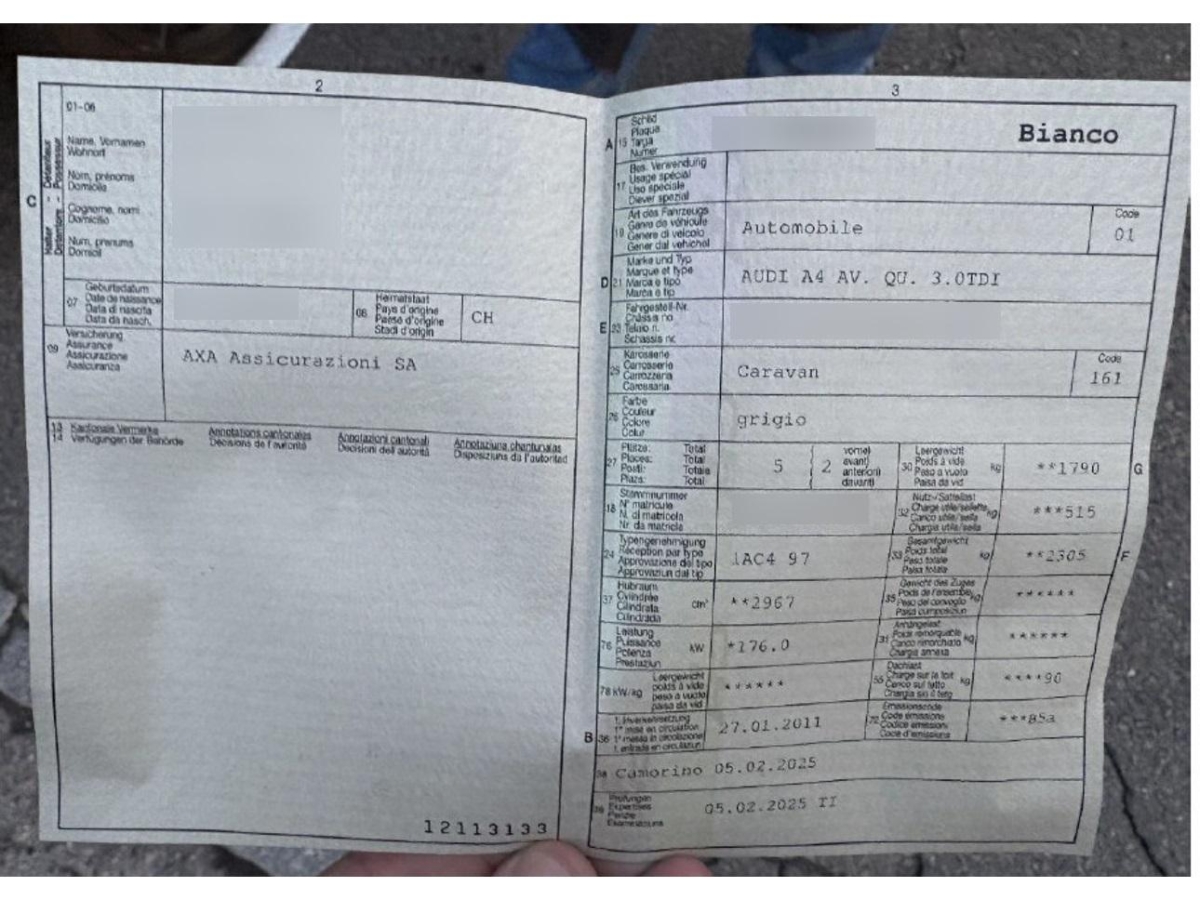 2
01-06
Name, Vornamen
Wohnort
Nom, prénoms
Domicile
Cognome, nomi
Domicilio
Num, prenums
Domicil
C
07
Geburtsdatum
Date de naissance
Data di nascita
Data da nasch.
08
Heimatstaat
Pays d'origine
Paese d'origine
Stadi d'origin
CH
09
Versicherung
Assurance
Assicurazione
Assicuranza
AXA Assicurazioni SA
13
14
Kantonale Vermerke
Verfügungen der Behörde
Annotations cantonales
Décisions de l'autorité
Annotazioni cantonali
Decisioni dell'autorità
Annotaziuns chantunalas
Disposiziuns da l'autoritad
12113133
3
A 15
Schild
Plaque
Targa
Numer
Bianco
17
Bes. Verwendung
Usage spécial
Uso speciale
Diever spezial
19
Art des Fahrzeugs
Genre de véhicule
Genere di veicolo
Gener dal vehichel
Automobile
Code
01
D 21
Marke und Typ
Marque et type
Marca e tipo
Marca e tip
AUDI A4 AV. QU. 3.0TDI
E 23
Fahrgestell-Nr.
Châssis no
Telaio n.
Schassis nr.
25
Karosserie
Carrosserie
Carrozzeria
Carossaria
Caravan
Code
161
26
Farbe
Couleur
Colore
Colur
grigio
27
Plätze: Total
Places: Total
Posti: Totale
Plazs: Total
5
2
vorne
avant
anteriori
davant
30
Leergewicht
Poids à vide
Peso a vuoto
Paisa da vid
kg
**1790
G
18
Stammnummer
N° matricule
N. di matricola
Nr. da matricla
32
Nutz-/Sattellast
Charge utile/sellette
Carico utile/sella
Chargia utila/sella
kg
***515
24
Typengenehmigung
Réception par type
Approvazione del tipo
Approvaziun dal tip
1AC4 97
33
Gesamtgewicht
Poids total
Peso totale
Paisa totala
kg
**2305
F
37
Hubraum
Cylindrée
Cilindrata
Cilindrada
cm³
**2967
35
Gewicht des Zuges
Poids de l'ensemble
Peso del convoglio
Paisa cumposiziun
kg
******
76
Leistung
Puissance
Potenza
Prestaziun
kW
*176.0
31
Anhängelast
Poids remorquable
Carico rimorchiato
Chargia annexa
kg
******
78 kW/kg
Leergewicht
poids à vide
peso a vuoto
paisa da vid
******
55
Dachlast
Charge sur le toit
Carico sul tetto
Chargia sin il tetg
kg
****90
B 36
1. Inverkehrsetzung
1re mise en circulation
1a messa in circolazione
1. entrada en circulaziun
27.01.2011
72
Emissionscode
Code émissions
Codice emissioni
Code d'emissiuns
***B5a
38
Camorino 05.02.2025
39
Prüfungen
Expertises
Perizie
Examinaziuns
05.02.2025 TI